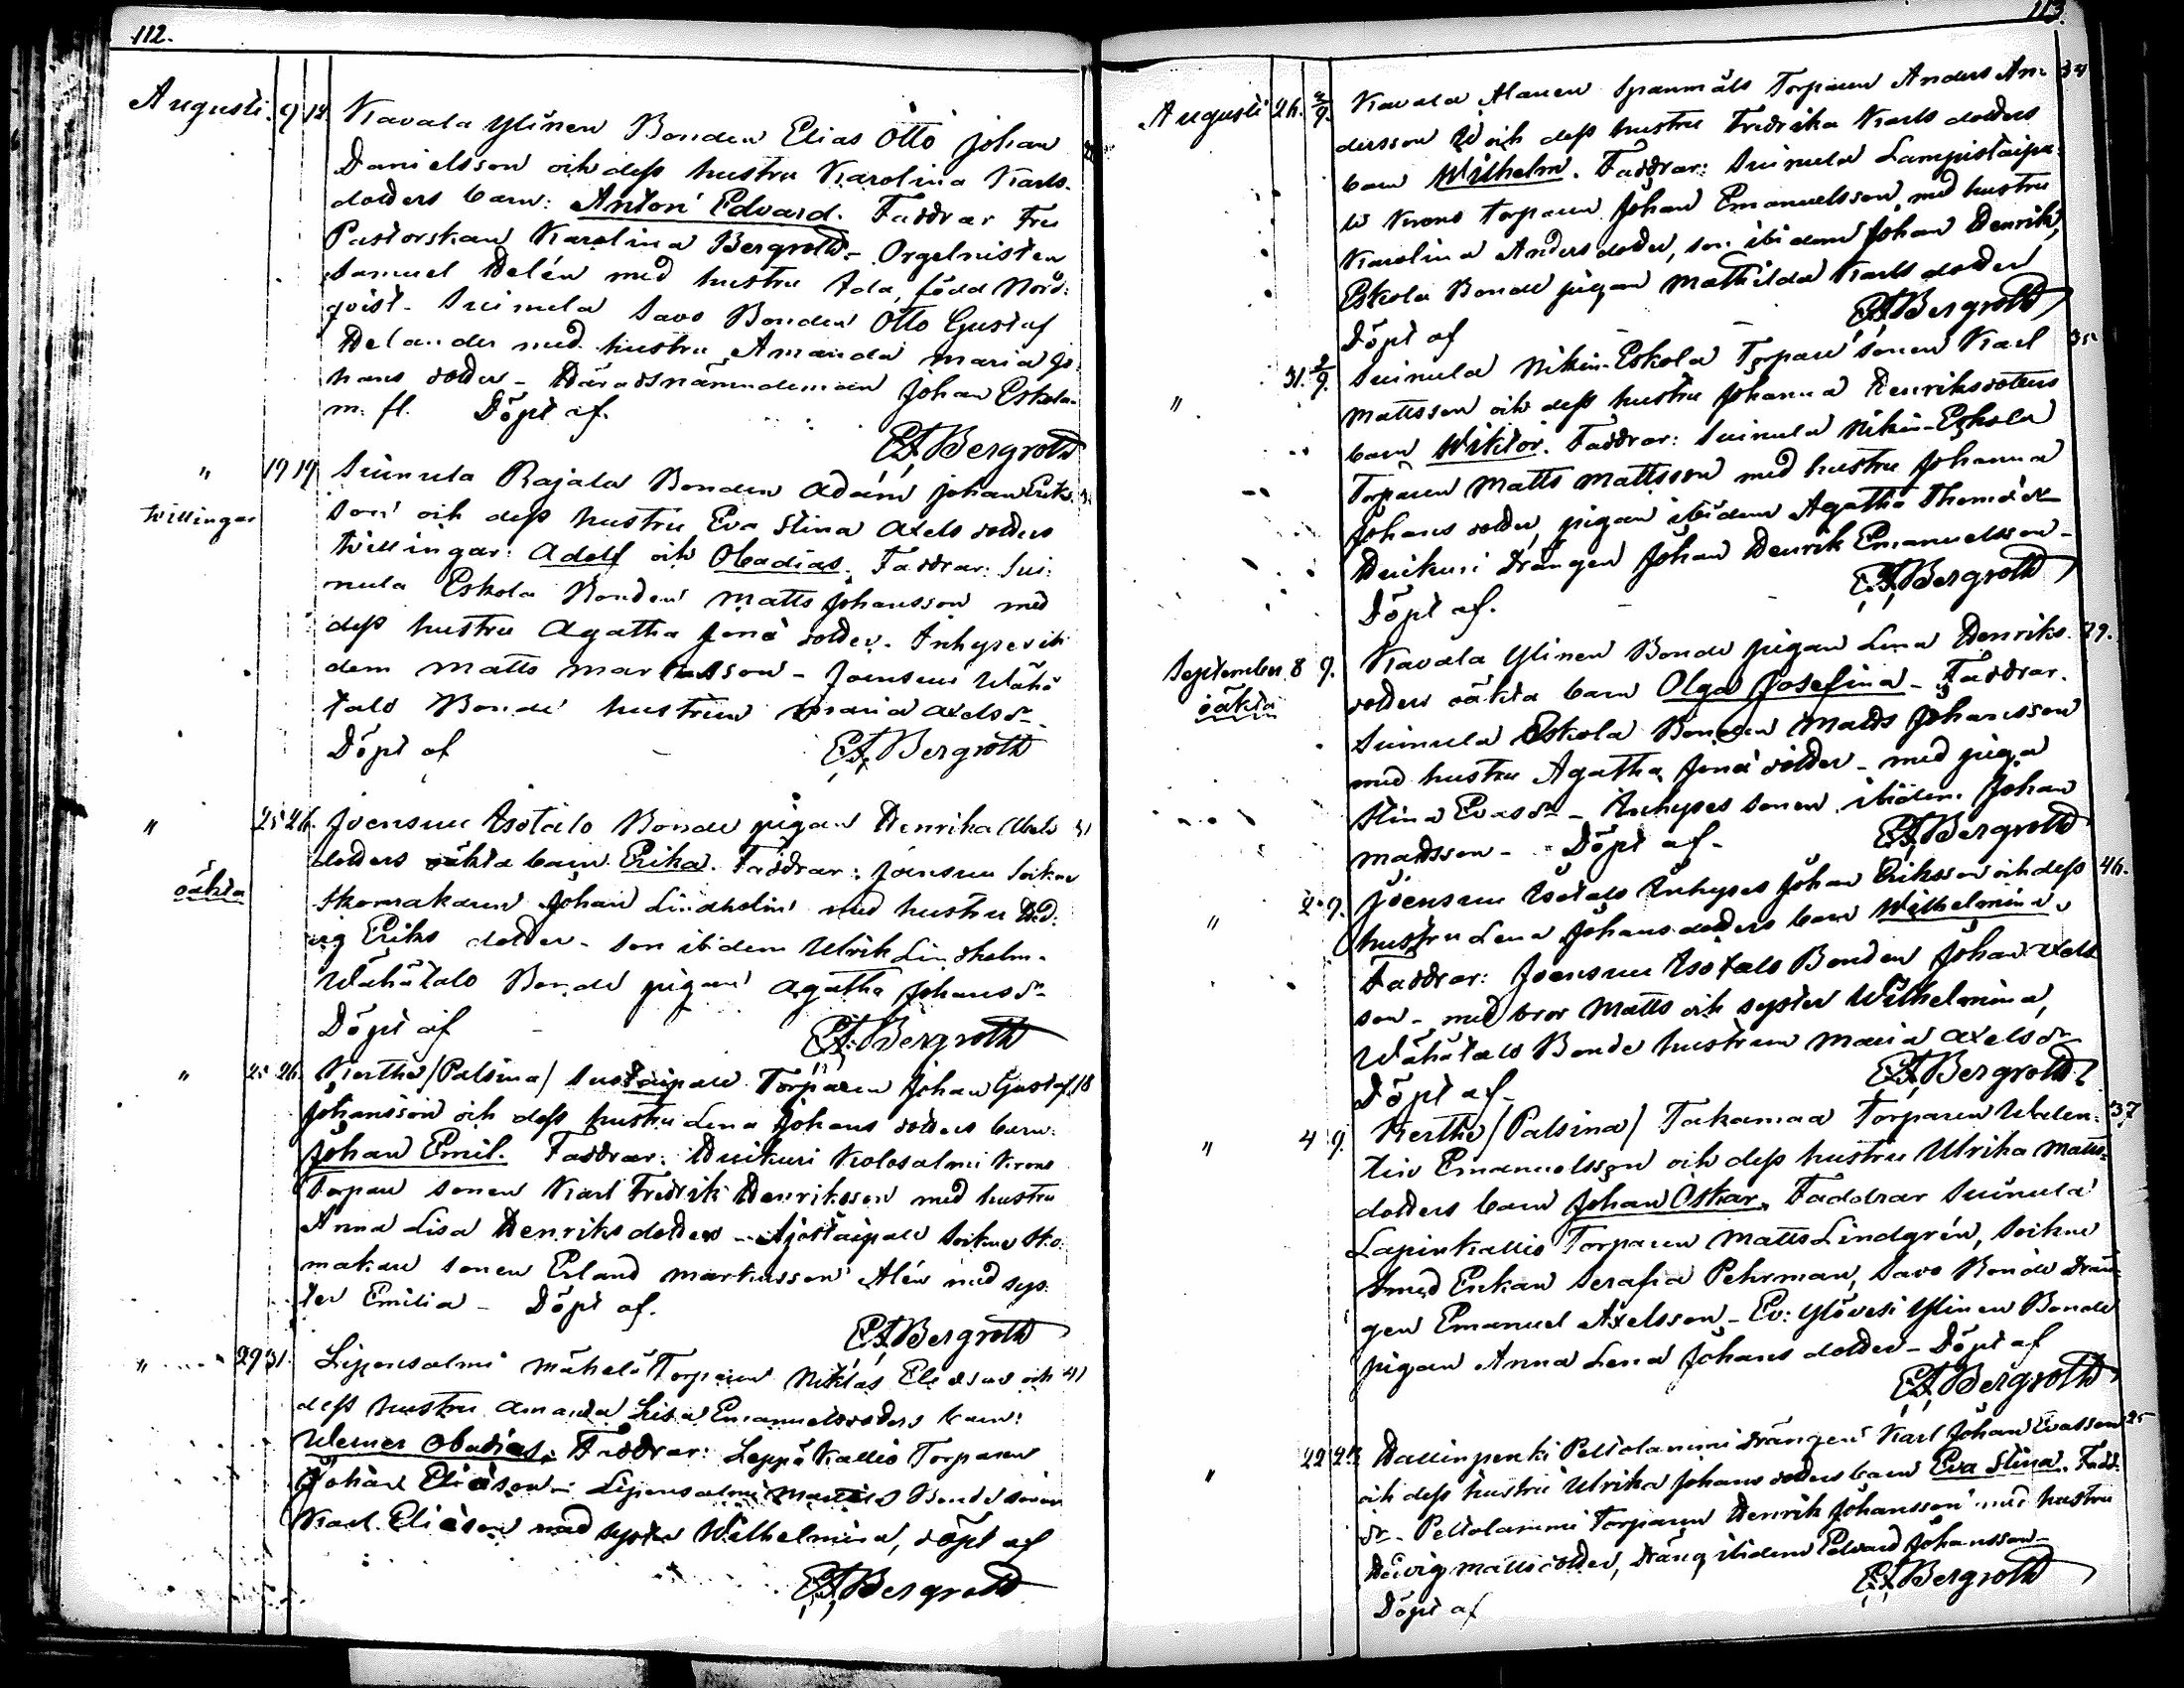 112.
Augusti. 9 12. Kavala Ylinen Bonden Elias Otto Johan
Danielsson och dess hustru Karolina Karls-
dotters barn: Anton Edvard. Faddrar Fru
Pastorskan Karolina Bergroth - Orgelnisten
Samuel Helén med hustru Ida, född Nord-
qvist - Suinula Savo Bonden Otto Gustaf
Helander med hustru Amanda Maria Jo-
hans dotter - Häradsnämndeman Johan Eskola
m. fl. Döpt af.
E. F. Bergroth
" 17 19 Suinula Rajala Bonden Adam Johan Eriks-
son och dess hustru Eva Stina Axels dotters
twillingar: Adolf och Obadias. Faddrar: Sui-
Twillingar
nula Eskola Bonden Matts Johansson med
dess hustru Agatha Jonä dotter. Inhyses ibi-
dem Matts Markusson - Joensuu Wähä
talo Bonde hustrun Maria Axelsdr
Döpt af E. F. Bergroth
" 25 26. Joensuu Isotalo Bonde pigan Henrika
dotters oäkta barn Erika. Faddrar: Joensuu Sockne
oäkta
skomakaren Johan Lindholm med hustru Hed-
vig Eriks dotter - son ibidem Ulrik Lindholm -
Wähätalo Bonde pigan Agatha Johansdr
Döpt af E. F. Bergroth
" 25 26. Kerthe /Palsina/ Torparen Johan Gustaf 18
Johansson och dess hustru Lena Johans dotters barn:
Johan Emil. Faddrar: Kolosalmi Krono
Torpare sonen Karl Fredrik Henriksson med hustru
Anna Lisa Henriks dotter - Sockne Sko-
makare sonen Erland Markusson Alén med sys-
ter Emilia - Döpt af.
E. F. Bergroth
" 29 31. Liponsalmi Mäkelä Torparen Niklas Eliasson och 41
dess hustru Amanda Lisa Emanuelsdotters barn:
Werner Obadias. Faddrar: Leppäkallio Torparen
Johan Eliasson - Liponsalmi Bonde sonen
Karl Eliasson med syster Wilhelmina, döpt af
E. F. Bergroth
113.
Augusti 26. 2/9. Kavala Alanen Spanmåls Torparen Anders An- 34
dersson och dess hustru Fredrika Karls dotters
barn Wilhelm. Faddrar: Suinula Lampistaipa-
le Krono Torparen Johan Emanuelsson med hustru
Karolina Anders dotter, son ibidem Johan Henrik,
Eskola Bonde pigan Mathilda Karls dotter
Döpt af E. F. Bergroth
" 31. 2/9. Suinula Nikin-Eskola Torpare sonen Karl
Mattsson och dess hustru Johanna Henriksdotters
barn Wiktor. Faddrar: Suinula Nikin-Eskola
Torparen Matts Mattsson med hustru Johanna
Johans dotter, pigan ibidem Agatha
drängen Johan Henrik Emanuelsson -
Döpt af. E. F. Bergroth
September 8 9. Kavala Ylinen Bonde pigan Lena Henriks- 29.
oäkta
dotters oäkta barn Olga Josefina - Faddrar.
Suinula Eskola Bonden Matts Johansson
med hustru Agatha Jonä dotter - med piga
Stina Evasdr - Inhyses sonen ibidem Johan
Mattsson - Döpt af - E. F. Bergroth
" 2. 9. Joensuu Isotalo Inhyses Johan Eriksson och dess 46.
hustru Lena Johans dotters barn Wilhelmina.
Faddrar: Joensuu Isotalo Bonden Johan Axels
son - med bror Matts och syster Wilhelmina,
Wähätalo Bonde hustrun Maria Axelsdr
Döpt af - E. F. Bergroth
" 4 9. Kerthe /Palsina/ Takamaa Torparen Walen- 37
tin Emanuelsson och dess hustru Ulrika Matts-
dotters barn Johan Oskar. Faddrar Suinula
Lapinkallio Torparen Matts Lindgrén, Sockne
Smed Enkan Serafia Pehrman, Savo Bonde drän-
gen Emanuel Axelsson - Ev: Ylövesi Ylinen Bonde
pigan Anna Lena Johans dotter - Döpt af
E. F. Bergroth
" 22 23. Hallinpenki Peltolammi drängen Karl Johan Evasson 25
och dess hustru Ulrika Johans dotters barn Eva Stina. Fadd-
dr - Peltolammi Torparen Henrik Johansson med hustru
Hedvig Matts dotter, dräng ibidem Edvard Johansson -
Döpt af E. F. Bergroth